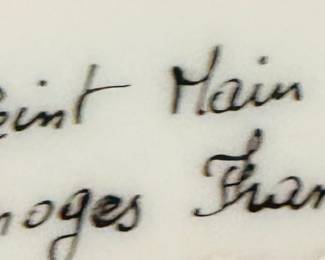 eint Main
noges Fran